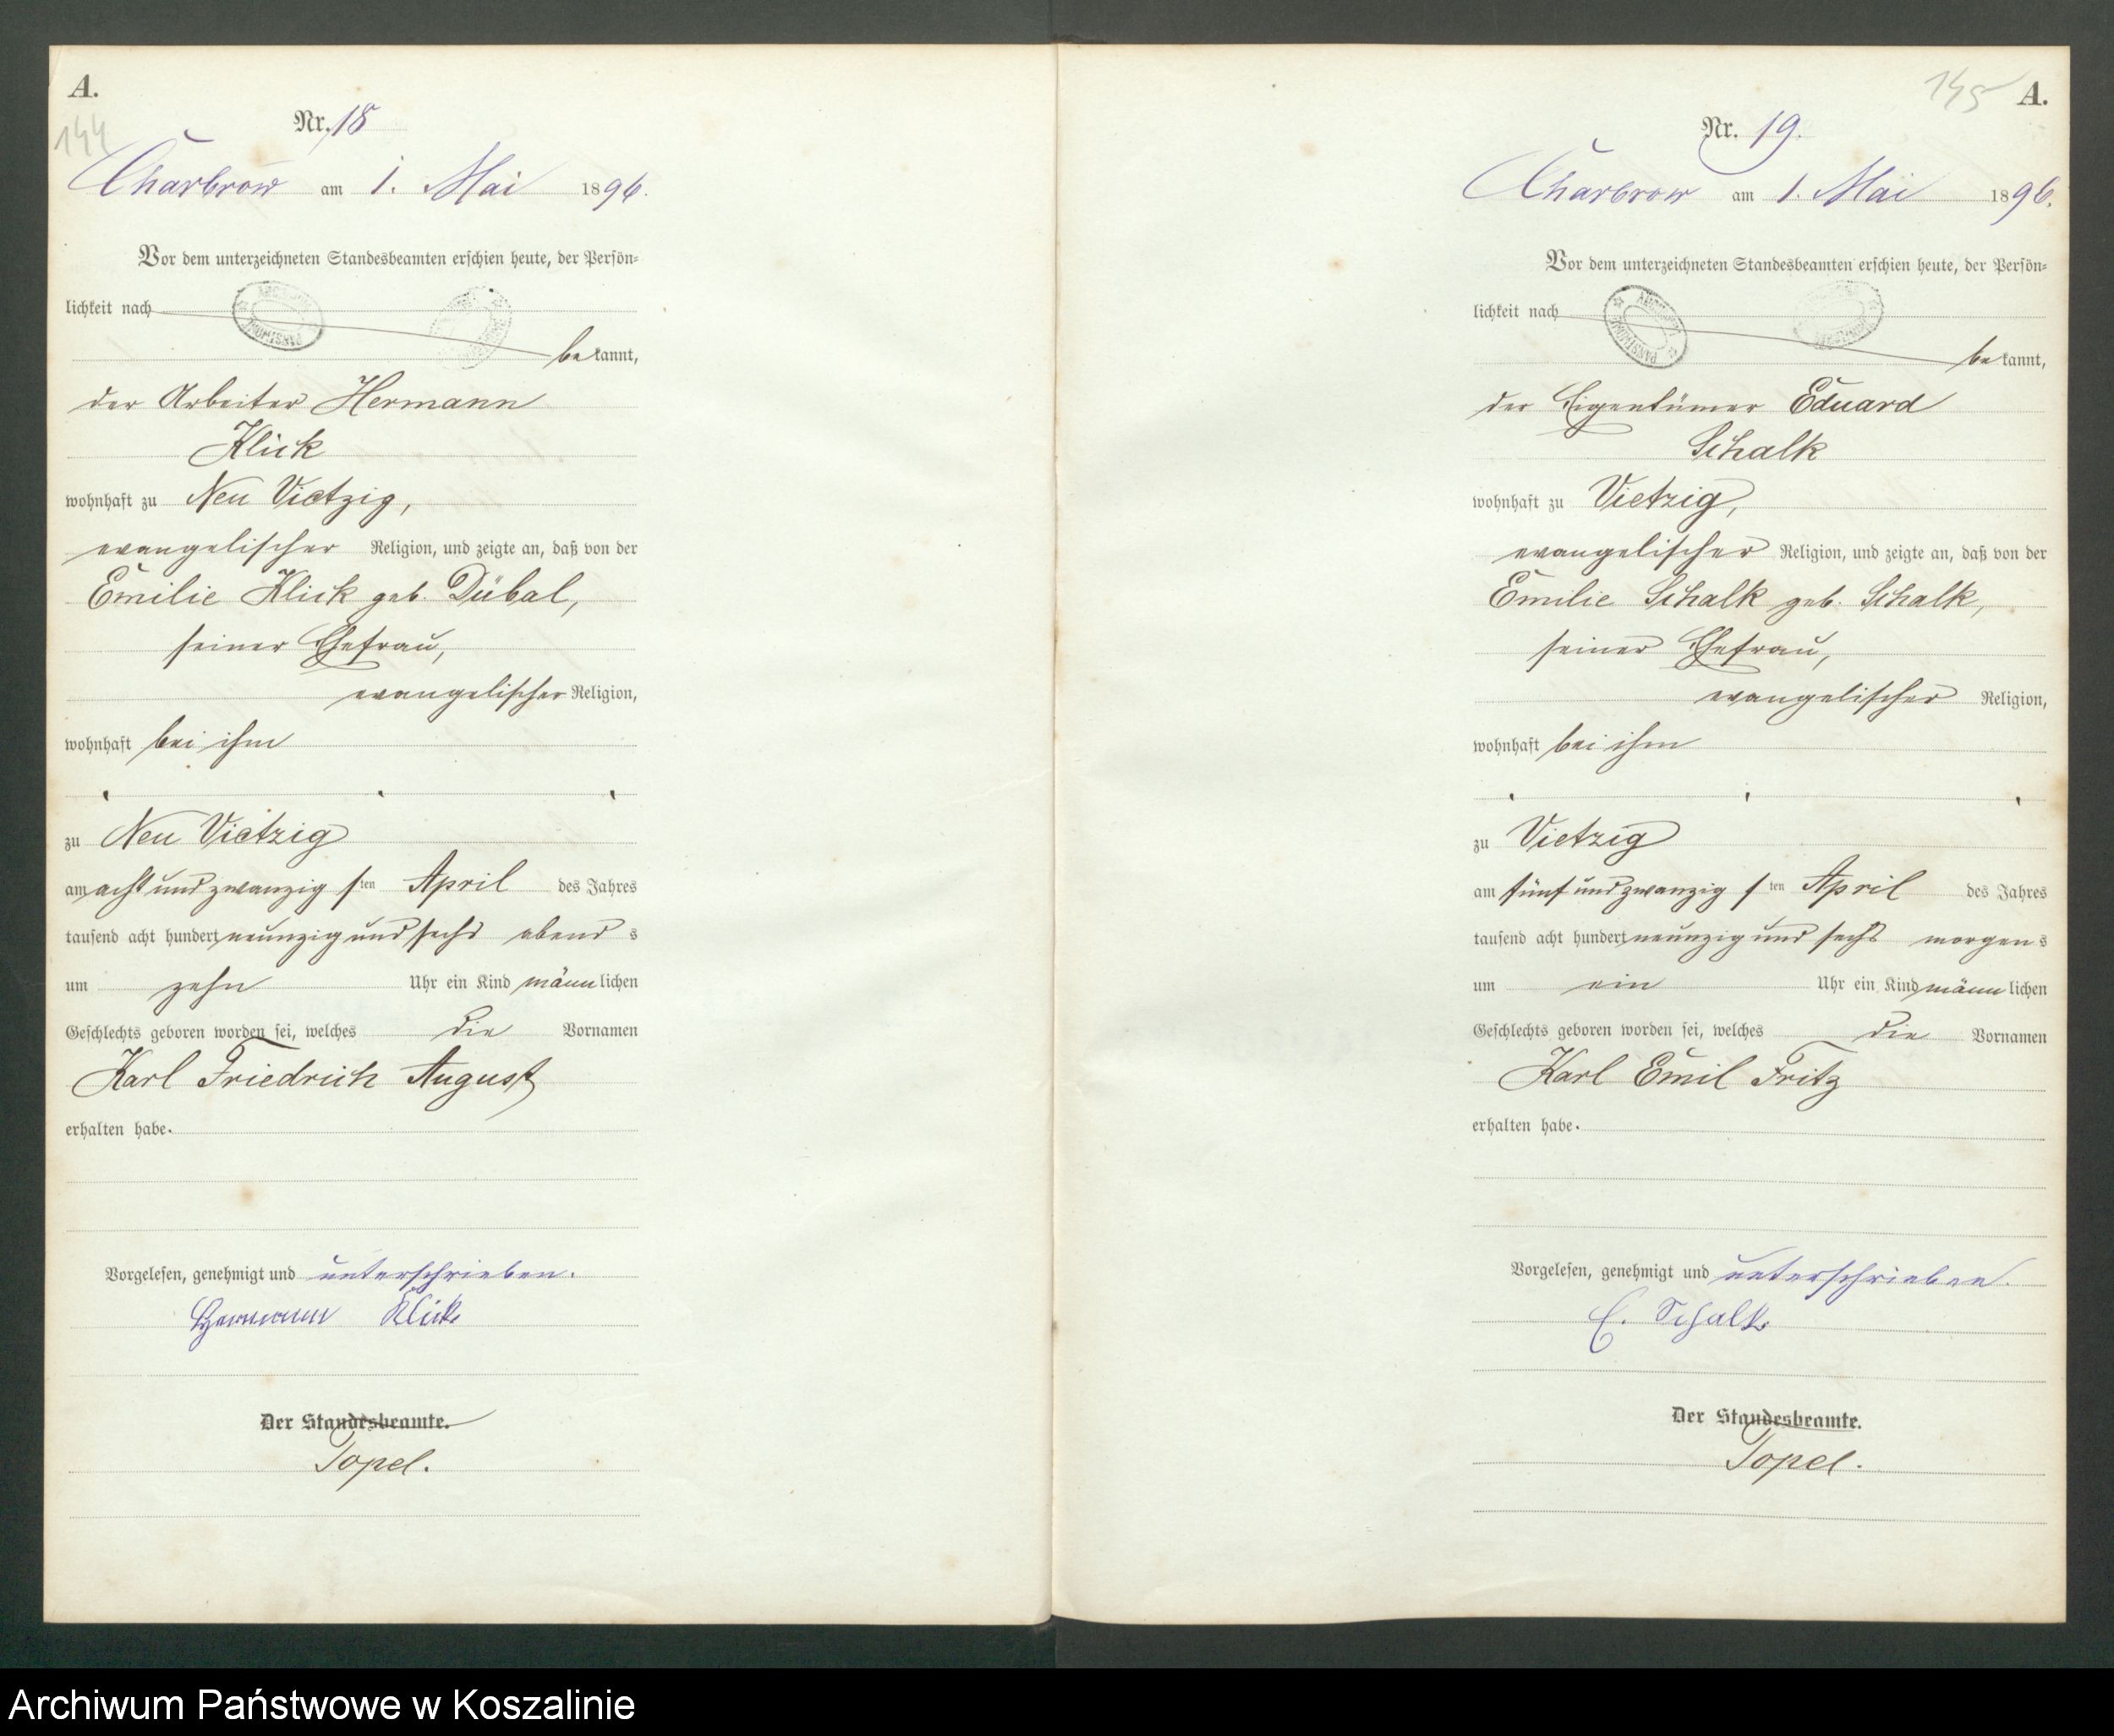 A.
144
Nr. 18
Charbrow am 1. Mai 1896.
Vor dem unterzeichneten Standesbeamten erschien heute, der Persön-
lichkeit nach
bekannt,
der Arbeiter Hermann
Klick
wohnhaft zu Neu Vietzig,
evangelischer Religion, und zeigte an, daß von der
Emilie Klick geb. Dübal,
seiner Ehefrau,
evangelischer Religion,
wohnhaft bei ihm
zu Neu Vietzig
am acht und zwanzigsten April des Jahres
tausend acht hundert neunzig und sechs abends
um zehn Uhr ein Kind männlichen
Geschlechts geboren worden sei, welches die Vornamen
Karl Friedrich August
erhalten habe.
Vorgelesen, genehmigt und unterschrieben.
Hermann Klick
Der Standesbeamte.
Topel.
145
A.
Nr. 19.
Charbrow am 1. Mai 1896.
Vor dem unterzeichneten Standesbeamten erschien heute, der Persön-
lichkeit nach
bekannt,
der Eigentümer Eduard
Schalk
wohnhaft zu Vietzig,
evangelischer Religion, und zeigte an, daß von der
Emilie Schalk geb. Schalk,
seiner Ehefrau,
evangelischer Religion,
wohnhaft bei ihm
zu Vietzig
am fünf und zwanzigsten April des Jahres
tausend acht hundert neunzig und sechs morgens
um ein Uhr ein Kind männlichen
Geschlechts geboren worden sei, welches die Vornamen
Karl Emil Fritz
erhalten habe.
Vorgelesen, genehmigt und unterschrieben.
E. Schalk
Der Standesbeamte.
Topel.
Archiwum Państwowe w Koszalinie